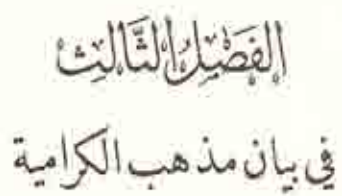 الفَصْلُ الثَّالِث
في بيان مذهب الكرامية